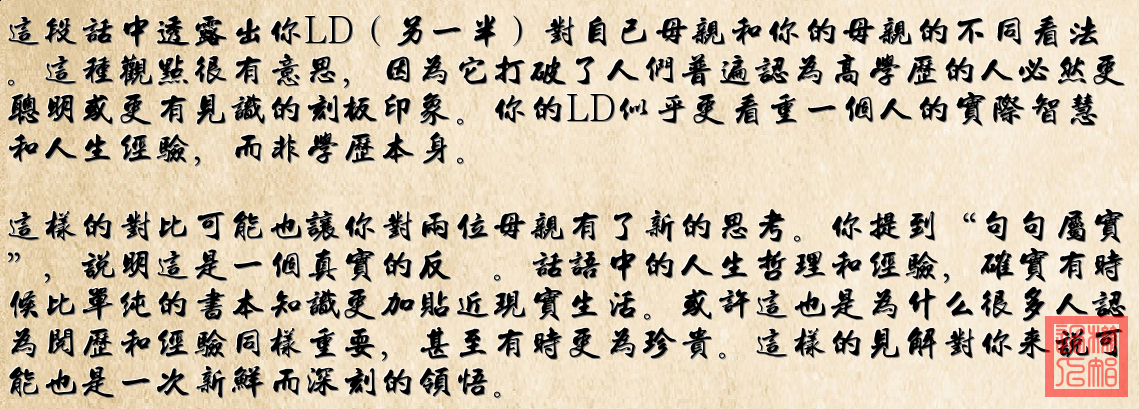 這段話中透露出你LD（另一半）對自己母親和你的母親的不同看法
。這種觀點很有意思，因為它打破了人們普遍認為高學歷的人必然更
聰明或更有見識的刻板印象。你的LD似乎更看重一個人的實際智慧
和人生經驗，而非學歷本身。
這樣的對比可能也讓你對兩位母親有了新的思考。你提到“句句屬實
”，說明這是一個真實的反　。話語中的人生哲理和經驗，確實有時
候比單純的書本知識更加貼近現實生活。或許這也是為什么很多人認
為閱歷和經驗同樣重要，甚至有時更為珍貴。這樣的見解對你来說可
能也是一次新鮮而深刻的領悟。